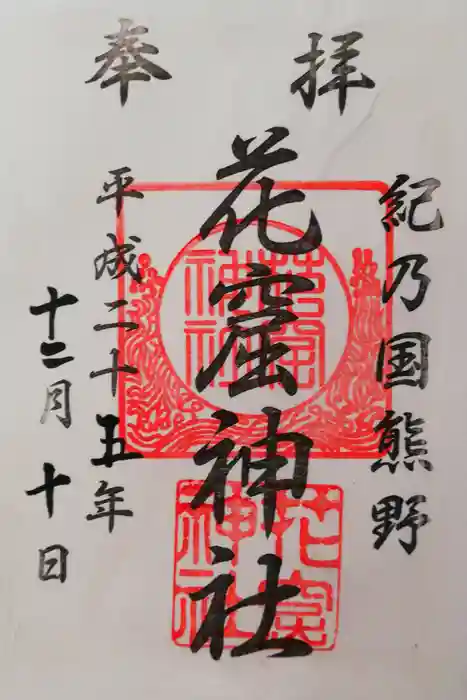 奉拝
紀乃国熊野
花窟神社
平成二十五年
十二月十日
花窟神社